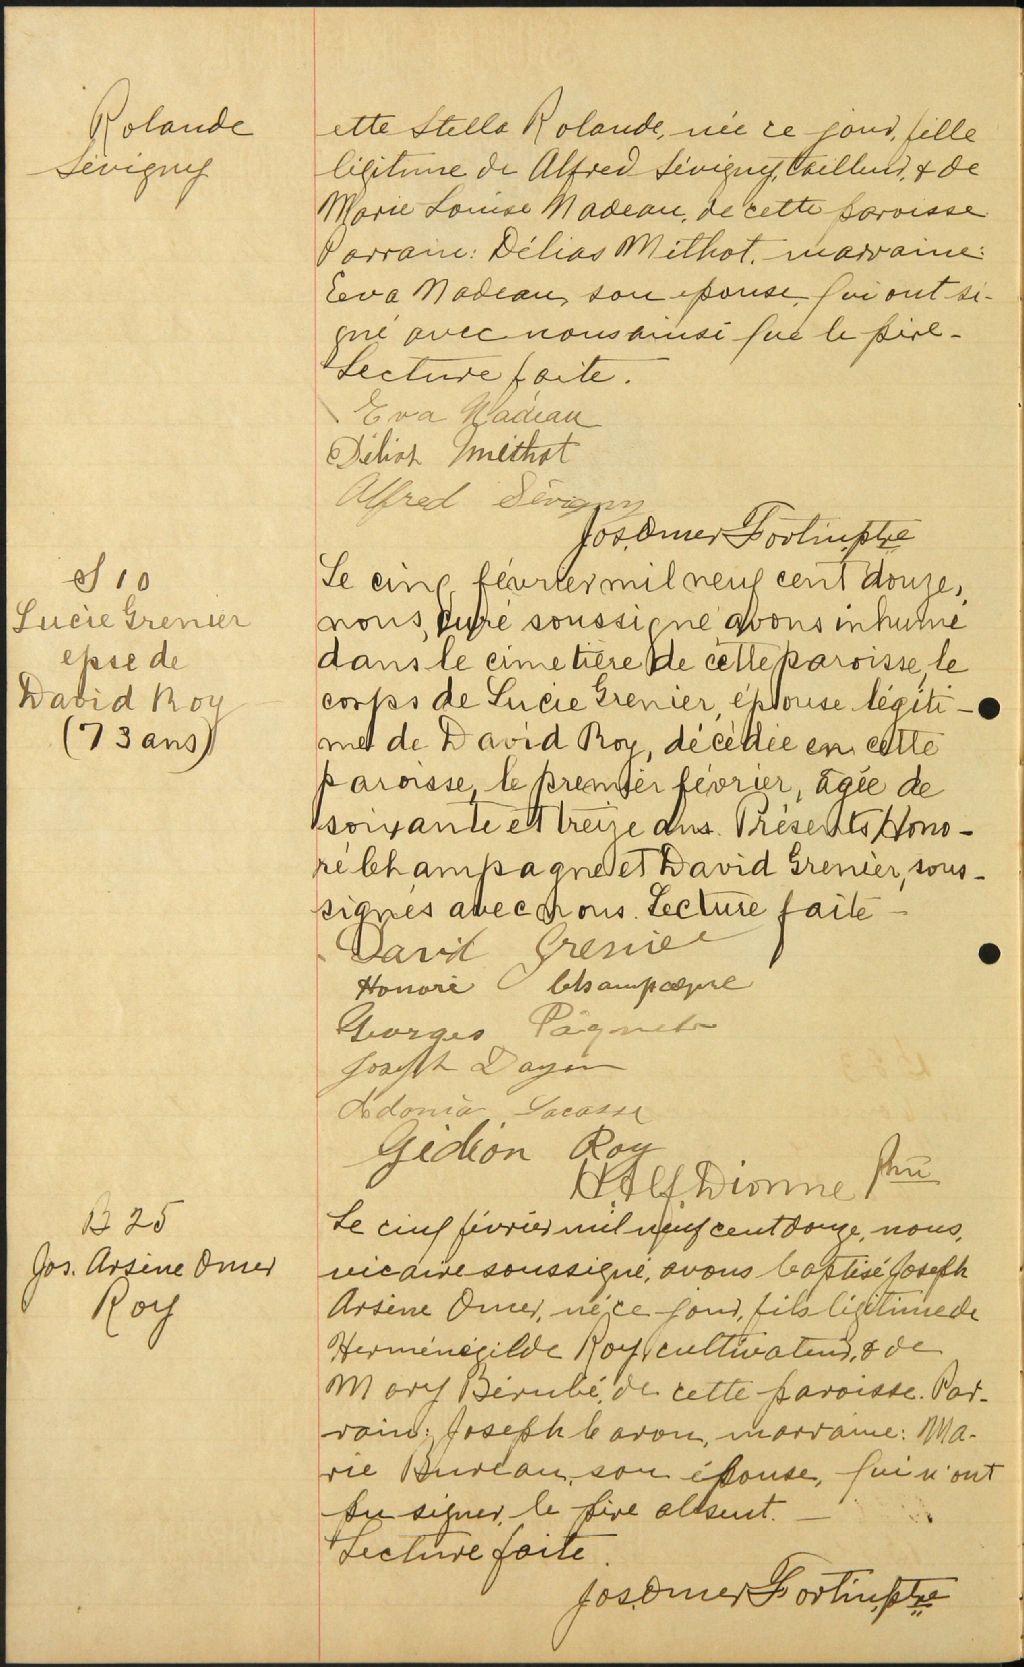 Rolande
Sévigny
ette Stella Rolande, née ce jour, fille
légitime de Alfred Sévigny, tailleur, & de
Marie Louise Nadeau, de cette paroisse
Parrain: Délias Méthot, marraine:
Eva Nadeau, son épouse, qui ont si-
gné avec nous ainsi que le père -
Lecture faite.
Eva Nadeau
Délias Méthot
Alfred Sévigny
Jos. Omer Fortin, ptre
S 10
Lucie Grenier
epse de
David Roy
(73 ans)
Le cinq février mil neuf cent douze,
nous, curé soussigné avons inhumé
dans le cimetière de cette paroisse, le
corps de Lucie Grenier, épouse légiti-
me de David Roy, décédée en cette
paroisse, le premier février, âgée de
soixante et treize ans. Présents, Hono-
ré Champagne et David Grenier, sous-
signés avec nous. Lecture faite -
David Grenier
Honoré Champagne
Georges Paquet
Joseph
Adonia Lacasse
Gédéon Roy
H. Alf. Dionne
B 25
Jos. Arsène Omer
Roy
Le cinq février mil neuf cent douze, nous,
vicaire soussigné, avons baptisé Joseph
Arsène Omer, né ce jour, fils légitime de
Herménégilde Roy, cultivateur, & de
Mary Bérubé, de cette paroisse. Par-
rain: Joseph Caron, marraine: Ma-
rie Bureau, son épouse, qui n'ont
pu signer, le père absent. -
Lecture faite.
Jos. Omer Fortin, ptre